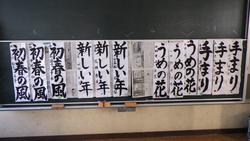 手まり
手まり
手まり
うめの花
うめの花
うめの花
新しい年
新しい年
新しい年
初春の風
初春の風
初春の風